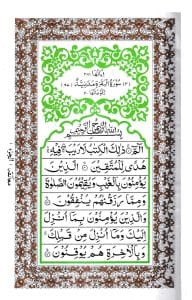 سُوْرَةُ الْبَقَرَةِ مَدَنِيَّةٌ
بِسْمِ اللهِ الرَّحْمٰنِ الرَّحِيْمِ
الٓمّٓ ذٰلِكَ الْكِتٰبُ لَا رَيْبَ فِيْهِ
هُدًى لِّلْمُتَّقِيْنَ الَّذِيْنَ
يُؤْمِنُوْنَ بِالْغَيْبِ وَيُقِيْمُوْنَ الصَّلٰوةَ
وَمِمَّا رَزَقْنٰهُمْ يُنْفِقُوْنَ
وَالَّذِيْنَ يُؤْمِنُوْنَ بِمَآ اُنْزِلَ
اِلَيْكَ وَمَآ اُنْزِلَ مِنْ قَبْلِكَ
وَبِالْاٰخِرَةِ هُمْ يُوْقِنُوْنَ